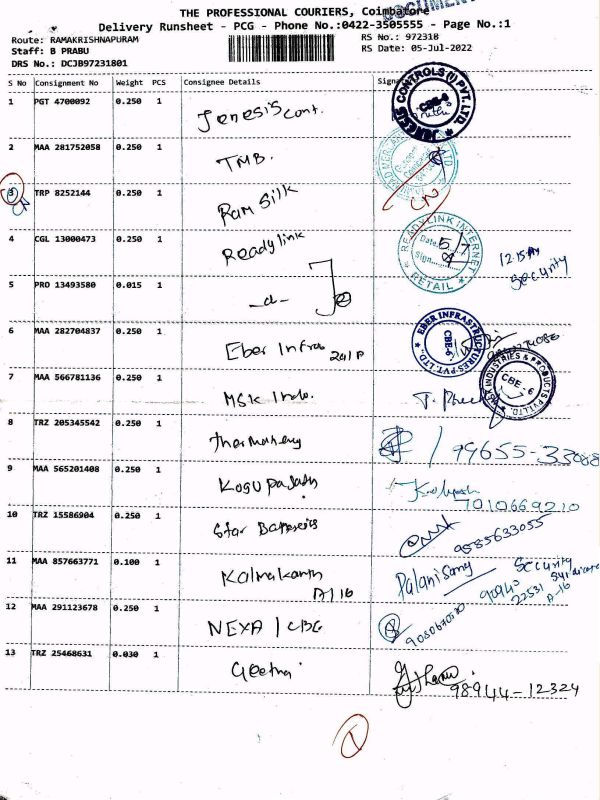 THE PROFESSIONAL COURIERS, Coimbatore
Delivery Runsheet - PCG - Phone No.:0422-3505555 - Page No.:1
Route: RAMAKRISHNAPURAM RS No.: 972318
Staff: B PRABU RS Date: 05-Jul-2022
DRS No.: DCJB97231801
S No Consignment No Weight PCS Consignee Details
1 PGT 4700092 0.250 1 Jenesis cont. JENESIS CONTROLS (I) PVT. LTD. CBE-6
2 MAA 281752058 0.250 1 TMB.
3 TRP 8252144 0.250 1 Ram Silk
4 CGL 13000473 0.250 1 Readylink READYLINK INTERNET RETAIL Date 5/7 Sign 12.15 PM Security
5 PRO 13493580 0.015 1 -d-
6 MAA 282704837 0.250 1 Eber Infra EBER INFRASTRUCTURES PVT. LTD. CBE-6
7 MAA 566781136 0.250 1 MSK Indu. MSK INDUSTRIES & PRODUCTS PVT LTD. CBE-6
8 TRZ 205345542 0.250 1 99655-33088
9 MAA 565201408 0.250 1 7010669210
10 TRZ 15586904 0.250 1 Star Batteries 9585633055
11 MAA 857663771 0.100 1 A/16 Palanisamy Security 90940 22531 A-16
12 MAA 291123678 0.250 1 NEXA / CBE
13 TRZ 25468631 0.030 1 Geetha 98944-12324
1